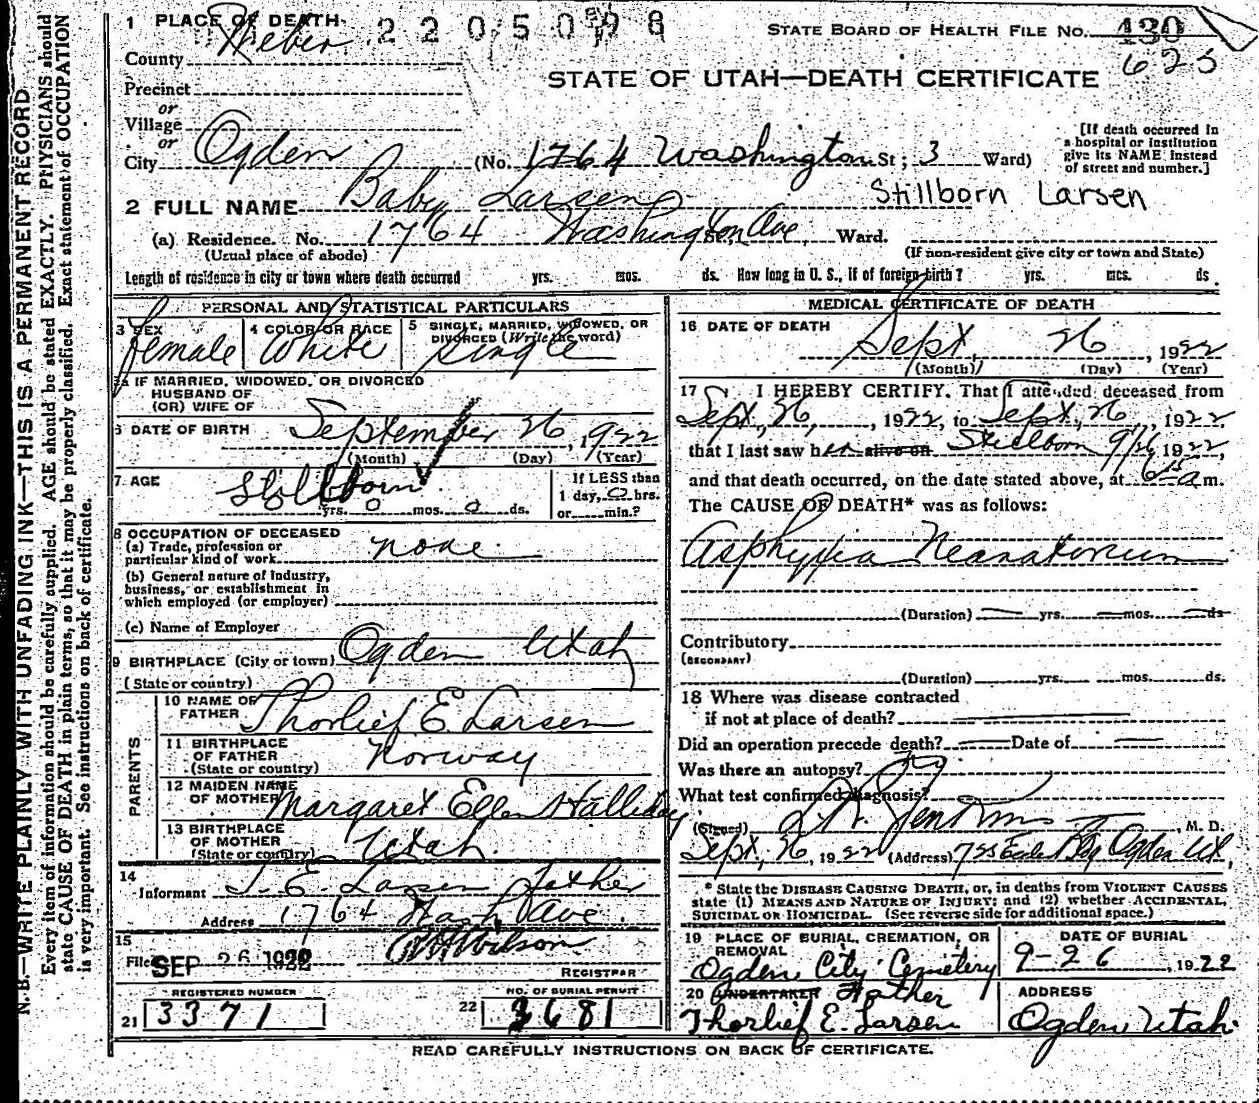 N. B.—WRITE PLAINLY WITH UNFADING INK—THIS IS A PERMANENT RECORD
Every item of information should be carefully supplied. AGE should be stated EXACTLY. PHYSICIANS should
state CAUSE OF DEATH in plain terms, so that it may be properly classified. Exact statement of OCCUPATION
is very important. See instructions on back of certificate.
1 PLACE OF DEATH
County Weber
STATE BOARD OF HEALTH FILE No. 430
625
STATE OF UTAH—DEATH CERTIFICATE
Precinct
or
Village
or
City Ogden (No. 1764 Washington St; 3 Ward)
[If death occurred in
a hospital or institution
give its NAME instead
of street and number.]
2 FULL NAME Baby Larsen Stillborn Larsen
(a) Residence. No. 1764 Washington Ave, Ward.
(Usual place of abode) (If non-resident give city or town and State)
Length of residence in city or town where death occurred yrs. mos. ds. How long in U. S., if of foreign birth? yrs. mos. ds
PERSONAL AND STATISTICAL PARTICULARS
3 SEX female
4 COLOR OR RACE White
5 SINGLE, MARRIED, WIDOWED, OR
DIVORCED (Write the word) Single
5a IF MARRIED, WIDOWED, OR DIVORCED
HUSBAND OF
(OR) WIFE OF
6 DATE OF BIRTH September 26, 1922
(Month) (Day) (Year)
7. AGE Stillborn
yrs. 0 mos. 0 ds.
If LESS than
1 day, 0 hrs.
or min.?
8 OCCUPATION OF DECEASED
(a) Trade, profession or
particular kind of work none
(b) General nature of industry,
business, or establishment in
which employed (or employer)
(c) Name of Employer
9 BIRTHPLACE (City or town) Ogden Utah
(State or country)
PARENTS
10 NAME OF
FATHER Thorlief E. Larsen
11 BIRTHPLACE
OF FATHER
(State or country) Norway
12 MAIDEN NAME
OF MOTHER Margaret Ellen Halliday
13 BIRTHPLACE
OF MOTHER
(State or country) Utah.
14
Informant T. E. Larsen father
Address 1764 Wash Ave.
15
Filed SEP 26 1922 Wilson
REGISTRAR
REGISTERED NUMBER
21 3371
NO. OF BURIAL PERMIT
22 3681
MEDICAL CERTIFICATE OF DEATH
16 DATE OF DEATH
Sept, 26, 1922
(Month) (Day) (Year)
17 I HEREBY CERTIFY. That I attended deceased from
Sept., 26, 1922, to Sept. 26, 1922,
that I last saw her alive on Stillborn 9/26 1922,
and that death occurred, on the date stated above, at m.
The CAUSE OF DEATH* was as follows:
Asphyxia Neanatorium
(Duration) yrs. mos. ds
Contributory
(SECONDARY)
(Duration) yrs. mos. ds.
18 Where was disease contracted
if not at place of death?
Did an operation precede death? Date of
Was there an autopsy?
What test confirmed diagnosis?
(Signed) Jenkins, M. D.
Sept, 26, 1922 (Address) Ogden Ut,
* State the DISEASE CAUSING DEATH, or, in deaths from VIOLENT CAUSES
state (1) MEANS AND NATURE OF INJURY; and (2) whether ACCIDENTAL,
SUICIDAL OR HOMICIDAL. (See reverse side for additional space.)
19 PLACE OF BURIAL, CREMATION, OR
REMOVAL
Ogden City Cemetery
DATE OF BURIAL
9-26, 1922
20 UNDERTAKER Father
Thorlief E. Larsen
ADDRESS
Ogden Utah
READ CAREFULLY INSTRUCTIONS ON BACK OF CERTIFICATE.